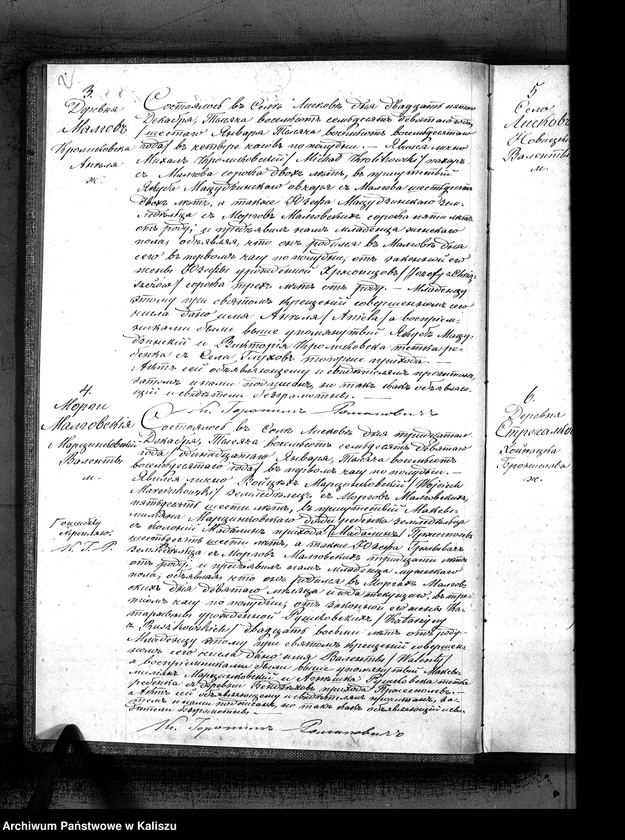 3.
Деревня
Малговъ
Кроликовска
Анеля
ж.
Состоялось въ Селѣ Лисковѣ дня двадцать пятаго
Декабря, Тысяча восемьсотъ семьдесятъ девятаго года
/шестаго Января Тысяча восемьсотъ восемьдесятаго
года/ въ четверо часовъ по полудни. — Явился лично
Михалъ Кроликовскій /Michał Królikowski/
съ Малгова сорока двохъ лѣтъ, въ присутствіи
Якуба Мацудзинскаго овчаря съ Малгова шестьдесятъ
двохъ лѣтъ, а также Юзефа Мацудзинскаго зем-
ледѣльца съ Морговъ Малговскихъ сорока пяти лѣтъ
отъ роду, и предъявилъ намъ младенца женскаго
пола, объявляя, что онъ родился въ Малговѣ дня
сего въ первомъ часу по полудни, отъ законной его
жены Юзефы урожденной
сорока трехъ лѣтъ отъ роду. — Младенцу
этому при святомъ крещеніи совершенномъ сего
числа дано имя Анеля /Aniela/ а воспріем-
никами были выше упомянутый Якубъ Мацу-
дзинскій и Викторія Кроликовска тетка ре-
бенка съ Села Глухова тогоже прихода. —
Актъ сей объявляющему и свидѣтелямъ прочитанъ,
затѣмъ нами подписанъ, но такъ какъ объявляю-
щій и свидѣтели безграмотны. —
Кс. Геронимъ Романовичъ
4.
Морги
Малговскія
Марцинковскій
Валенты
м.
К. Г. Р.
Состоялось въ Селѣ Лисковѣ дня тридцатаго
Декабря, Тысяча восемьсотъ семьдесятъ девятаго
года /одинадцатаго Января, Тысяча восемьсотъ
восемьдесятаго года/ въ первомъ часу по полудни. —
Явился лично Войцехъ Марцинковскій /Wojciech
Marcinkowski/ земледѣлецъ съ Морговъ Малговскихъ,
пятьдесятъ шести лѣтъ, въ присутствіи Макси-
миліяна Марцинковскаго дяди ребенка земледѣльца
съ колоніи Мадалинъ прихода /Madalin/
шестьдесятъ шести лѣтъ, а также Юзефа
земледѣльца съ Морговъ Малговскихъ тридцати лѣтъ
отъ роду, и предъявилъ намъ младенца мужескаго
пола, объявляя, что онъ родился въ Моргахъ Малгов-
скихъ дня девятаго мѣсяца и года текущаго, въ тре-
тіемъ часу по полудни, отъ законной его жены Ка-
таржины урожденной Рушковскихъ /Katarzyny
z Ruszkowskich/ двадцать восьми лѣтъ отъ роду.
Младенцу этому при святомъ крещеніи совершен-
номъ сего числа дано имя Валенты /Walenty/
а воспріемниками были выше упомянутый Макси-
миліанъ Марцинковскій и Агнешка Рушковска тетка
ребенка съ деревни прихода
Актъ сей объявляющему и свидѣтелямъ прочитанъ, за-
тѣмъ нами подписанъ, но такъ какъ объявляющій и сви-
дѣтели безграмотны. —
Кс. Геронимъ Романовичъ
5
Село
Лисковъ
Валенты
м.
6.
Деревня
ж.
Archiwum Państwowe w Kaliszu